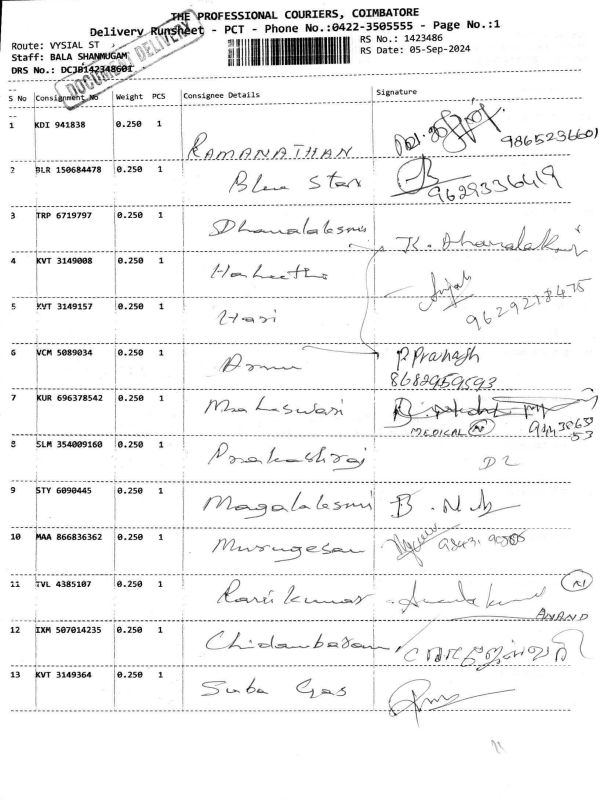 THE PROFESSIONAL COURIERS, COIMBATORE
Delivery Runsheet - PCT - Phone No.:0422-3505555 - Page No.:1
Route: VYSIAL ST
RS No.: 1423486
Staff: BALA SHANMUGAM
RS Date: 05-Sep-2024
DRS No.: DCJB142348601
DOCUMENT DELIVERY
S No Consignment No Weight PCS Consignee Details Signature
1 KDI 941838 0.250 1 RAMANATHAN 9865236601
2 BLR 150684478 0.250 1 Blue Star 9629336419
3 TRP 6719797 0.250 1 Dhanalaksmi K. Dhanalakshmi
4 KVT 3149008 0.250 1
5 KVT 3149157 0.250 1 Hari 9629218475
6 VCM 5089034 0.250 1 P. Prakash
8682959593
7 KUR 696378542 0.250 1 Maheswari
MEDICAL
8 SLM 354009160 0.250 1 Prakashraj D2
9 STY 6090445 0.250 1 Magalaksmi B.
10 MAA 866836362 0.250 1 Murugesan
11 TVL 4385107 0.250 1 Ravikumar
ANAND
12 IXM 507014235 0.250 1 Chidambaram
13 KVT 3149364 0.250 1 Suba Gas